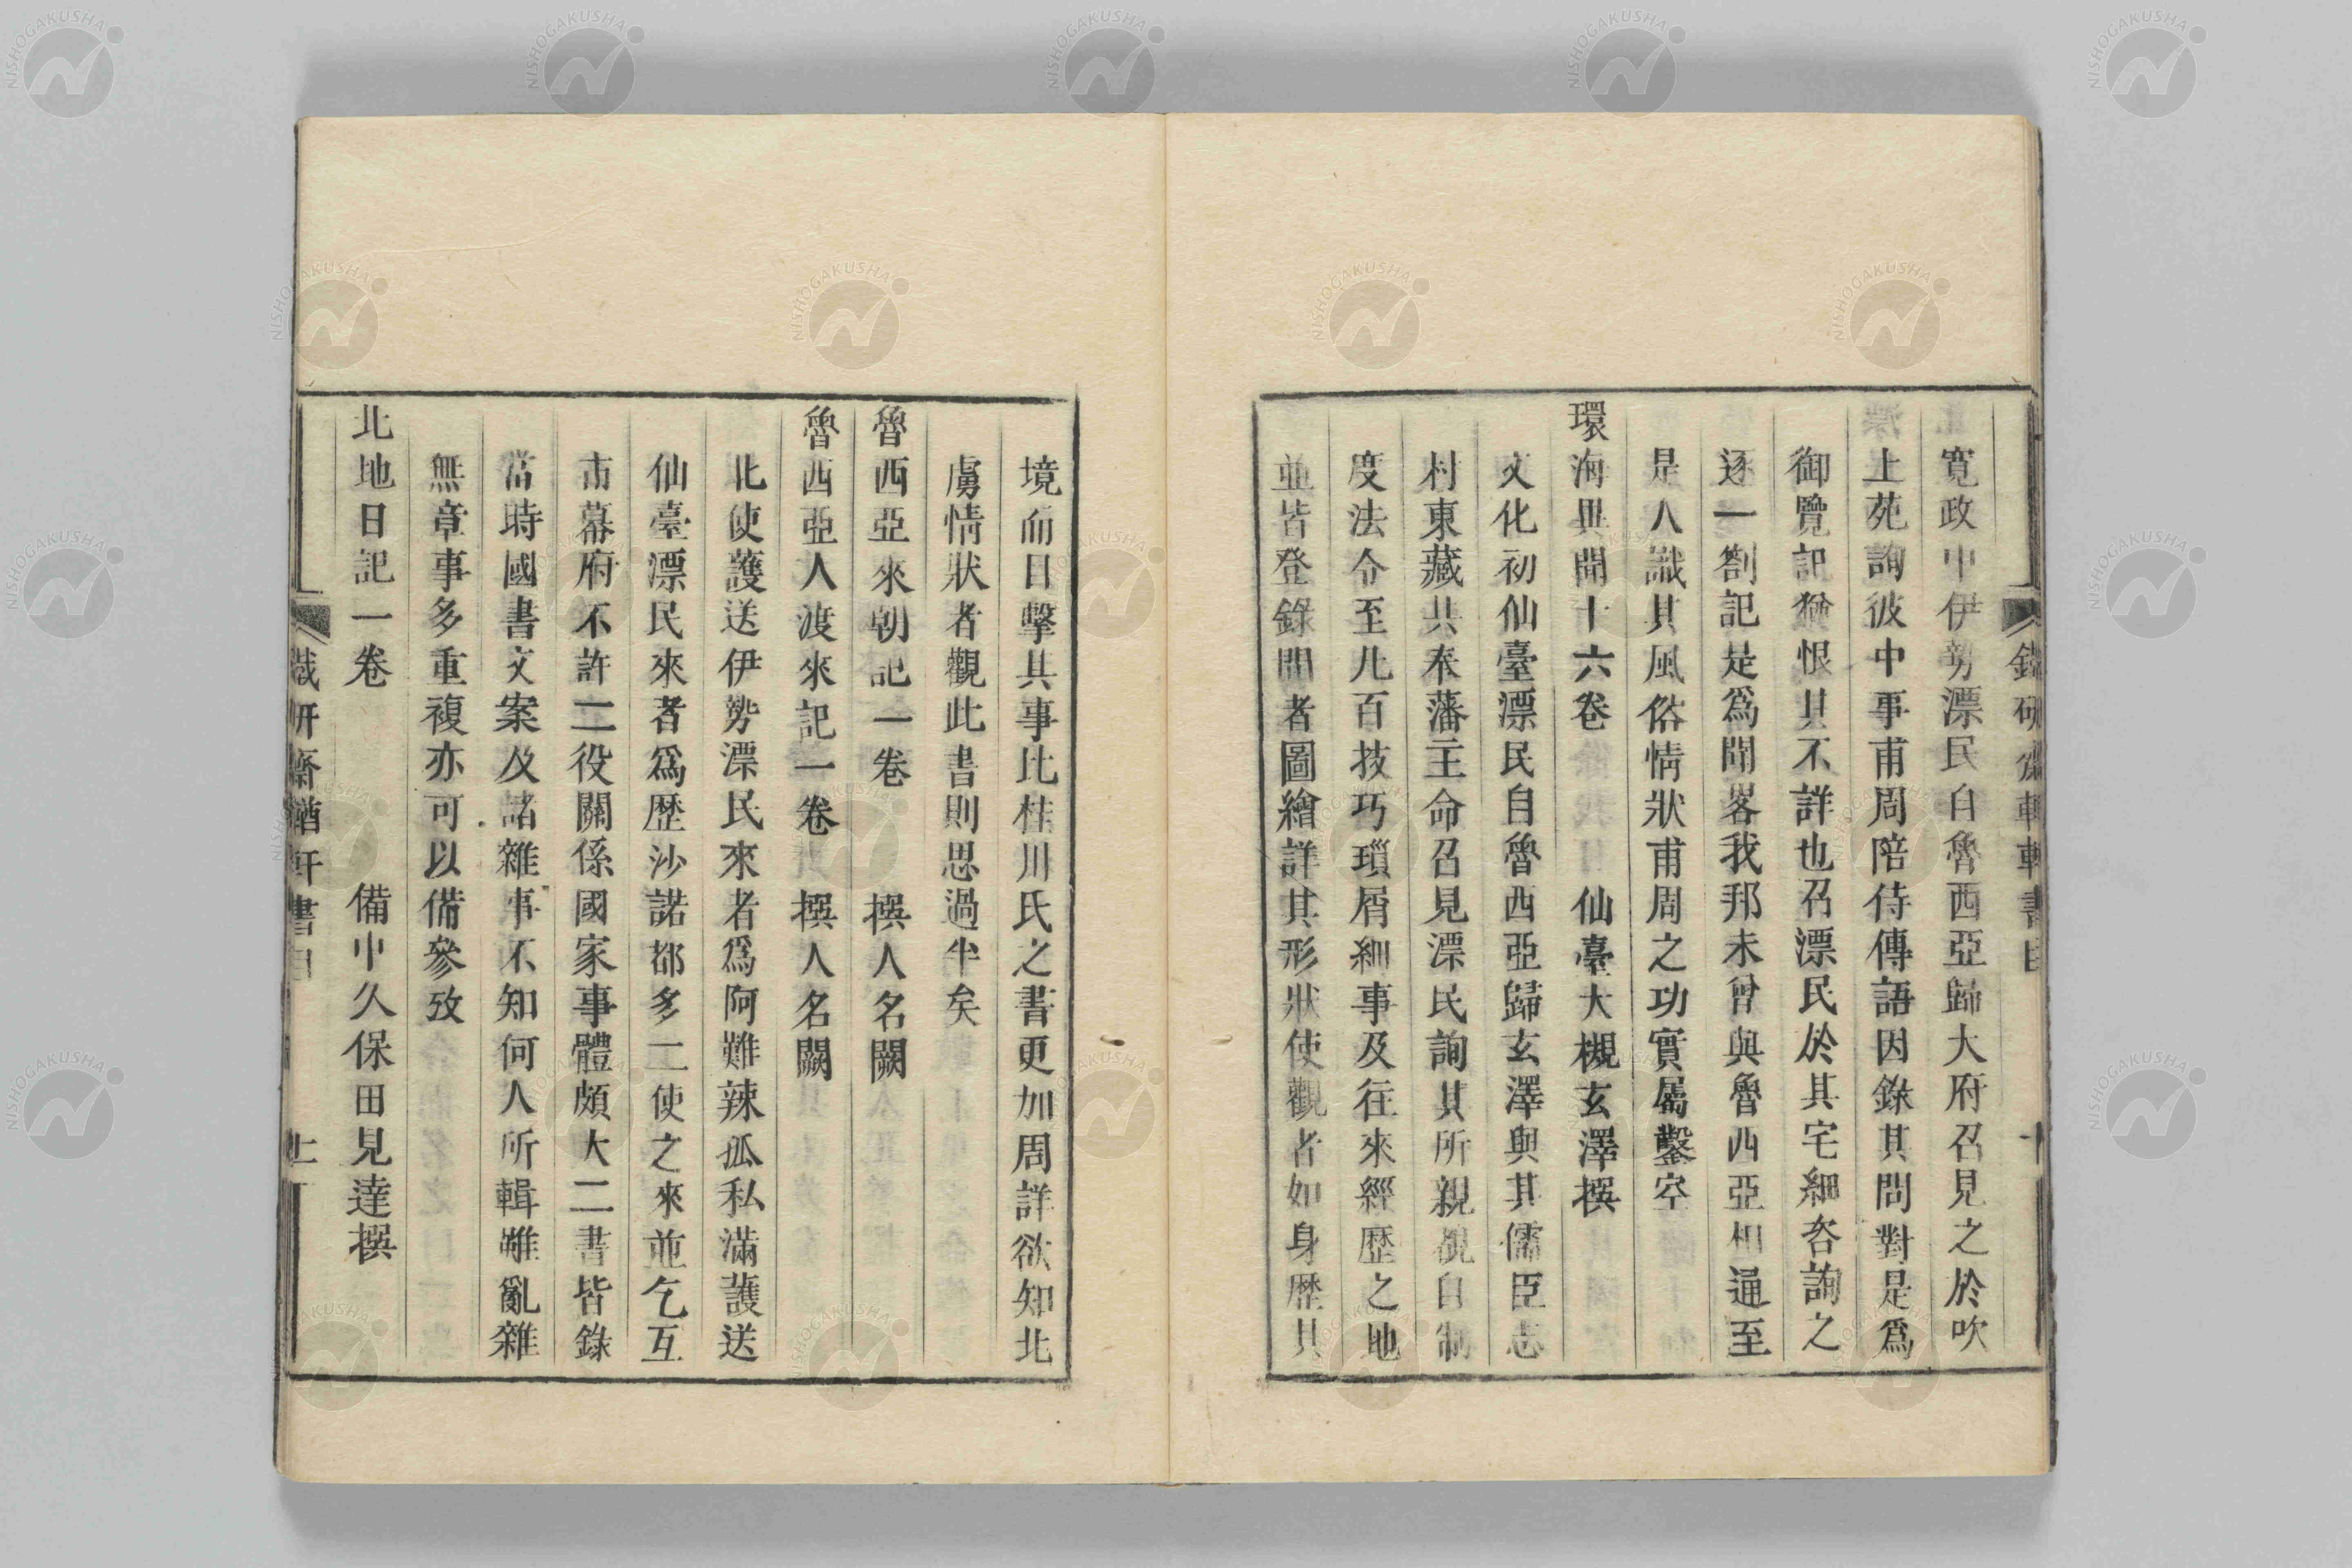 寛政中伊勢漂民自魯西亞歸大府召見之於吹
上苑詢彼中事甫周陪侍傳語因錄其問對是爲
御覽記猶恨其不詳也召漂民於其宅細咨詢之
逐一劄記是爲聞畧我邦未曾與魯西亞相通至
是人識其風俗情狀甫周之功實屬鑿空
環海異聞十六卷 仙臺大槻玄澤撰
文化初仙臺漂民自魯西亞歸玄澤與其儒臣志
村東藏共奉藩主命召見漂民詢其所親覩自制
度法令至凡百技巧瑣屑細事及往來經歷之地
並皆登錄聞者圖繪詳其形狀使觀者如身歷其
境而目擊其事比桂川氏之書更加周詳欲知北
虜情狀者觀此書則思過半矣
魯西亞來朝記一卷 撰人名闕
魯西亞人渡來記一卷 撰人名闕
北使護送伊勢漂民來者爲阿難辣孤私滿護送
仙臺漂民來者爲歷沙諾都多二使之來並乞互
市幕府不許二役關係國家事體頗大二書皆錄
當時國書文案及諸雜事不知何人所輯雖亂雜
無章事多重複亦可以備參攷
北地日記一卷 備中久保田見達撰
鐵研齋輶軒書目
NISHOGAKUSHA